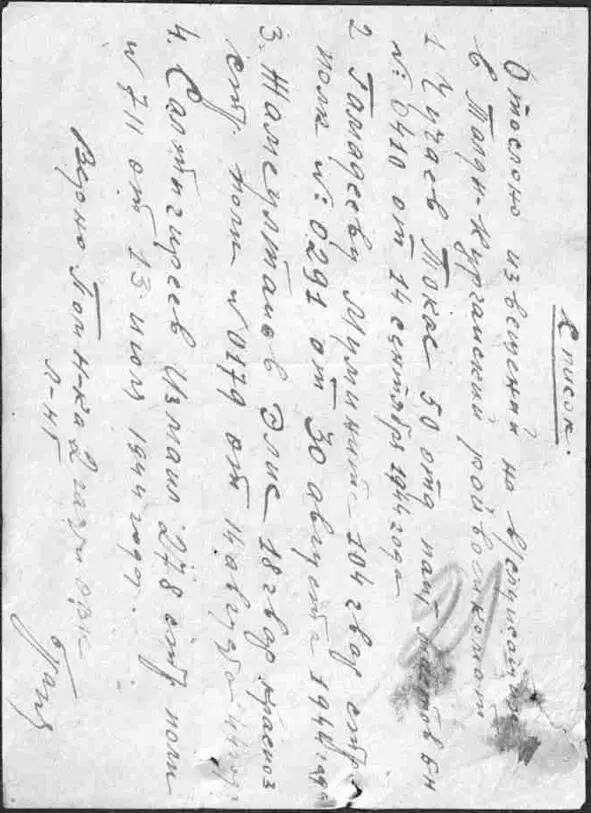 Список.
Отослоно извещений на в/служащих
в Талды-Курганский райвоенкомат
1 Чугаев Токас 50 отд
№: 0410 от 14 сентября 1944 года
2 Гападееву 104 гвар стр
полк №: 0.291 от 30 августа 1944
3. Жамеултанов Элис 18 гвар красноз
стр. полк №0179 от 14 августа 44
4. Салтыгиреев Измаил 278 стр полк
№ 711 от 13 июля 1944 года.
Верно Пом Н-ка 2 части РВК
Л-нт